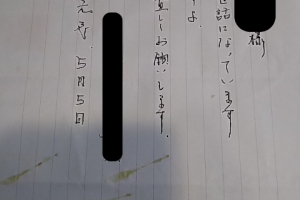 様
世話になっています
よ
宜しくお願いします。
5月5日